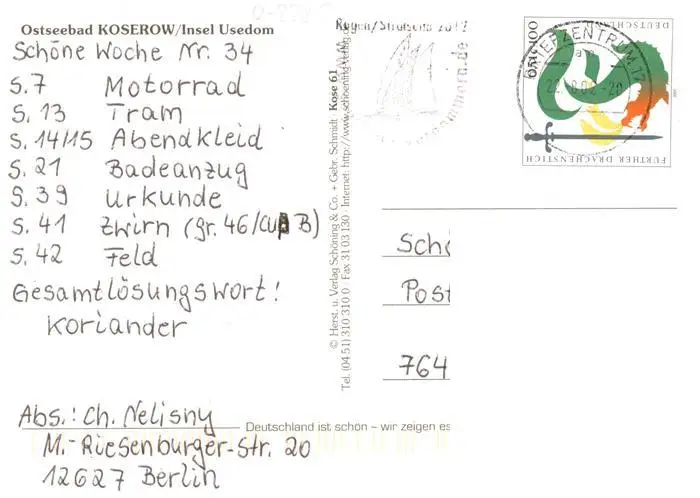 Ostseebad KOSEROW/Insel Usedom
Schöne Woche Nr. 34
S.7 Motorrad
S. 13 Tram
S. 14/15 Abendkleid
S. 21 Badeanzug
S. 39 Urkunde
S. 41 Zwirn (gr. 46/Cup B)
S. 42 Feld
Gesamtlösungswort!
Koriander
Abs.: Ch. Nelisny
M.-Riesenburger-Str. 20
12627 Berlin
© Herst. u. Verlag Schöning & Co. + Gebr. Schmidt · Kose 61
Tel. (04 51) 310 310 0 · Fax 31 03 130 · Internet: http://www.schoening-verlag.de
Deutschland ist schön – wir zeigen es
BRIEFZENTRUM 17
22.8.02-20
DEUTSCHLAND
FURTHER DRACHENSTICH
Schö
Post
764